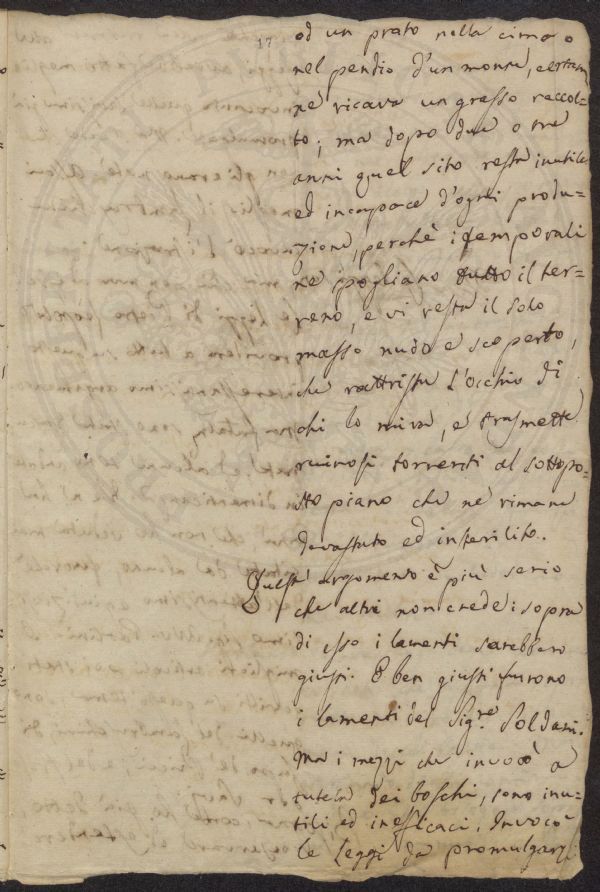 17
od un prato nella cima o
nel pendio d'un monte, e certam
ne ricava un grosso raccol=
to; ma dopo due o tre
anni quel sito resta inutile
ed incapace d'ogni produ=
zione, perchè i temporali
ne spogliano tutto il ter=
reno, e vi resta il solo
masso nudo e scoperto,
che rattrista l'occhio di
chi lo mira, e trasmette
ruinosi torrenti al sottopo=
sto piano che ne rimane
devastato ed insterilito.
Quest' argomento è più serio
che altri non crede: sopra
di esso i lamenti sarebbero
giusti. E ben giusti furono
i lamenti del Sig.re Soldani.
Ma i mezzi che invocò a
tutela dei boschi, sono inu=
tili ed inefficaci. Invocò
le Leggi da promulgarsi